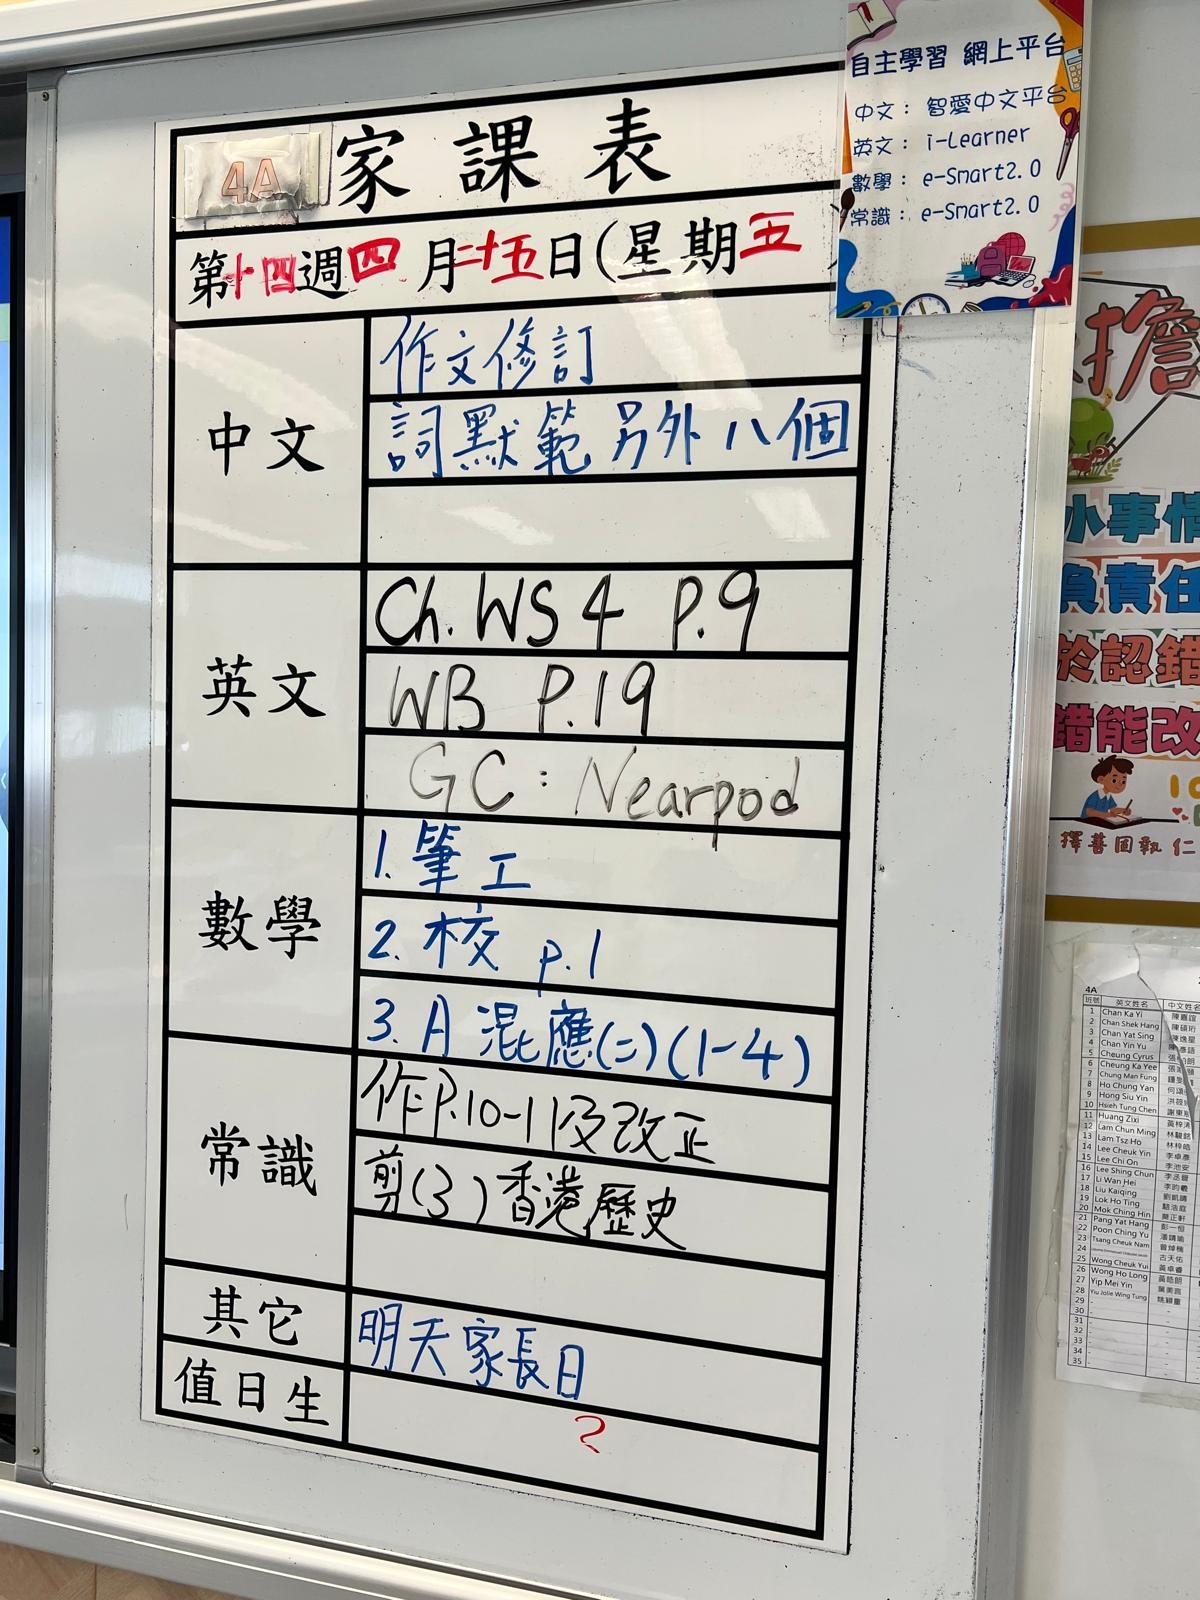 4A 家課表
第十四週四月二十五日(星期五
中文
作文修訂
詞默範另外八個
英文
Ch. WS 4 P.9
WB P.19
GC: Nearpod
數學
1. 筆工
2. 校 p.1
3. A 混應(二)(1-4)
常識
作P.10-11及改正
剪(3)香港歷史
其它
明天家長日
值日生
?
自主學習 網上平台
中文: 智愛中文平台
英文: i-Learner
數學: e-Smart2.0
常識: e-Smart2.0
擔
小事情
負責任
於認錯
錯能改
擇善固執 仁
4A
班號 英文姓名 中文姓名
1 Chan Ka Yi 陳嘉誼
2 Chan Shek Hang
3 Chan Yat Sing
4 Chan Yin Yu
5 Cheung Cyrus
6 Cheung Ka Yee
7 Chung Man Fung
8 Ho Chung Yan
9 Hong Siu Yin
10 Hsieh Tung Chen
11 Huang Zixi
12 Lam Chun Ming
13 Lam Tsz Ho
14 Lee Cheuk Yin
15 Lee Chi On
16 Lee Shing Chun
17 Li Wan Hei
18 Liu Kaiqing
19 Lok Ho Ting
20 Mok Ching Hin
21 Pang Yat Hang
22 Poon Ching Yu
23 Tsang Cheuk Nam
24
25 Wong Cheuk Yui
26 Wong Ho Long
27 Yip Mei Yin
28 Yiu Jolie Wing Tung
29 -
30 -
31 -
32 -
33 -
34 -
35 -